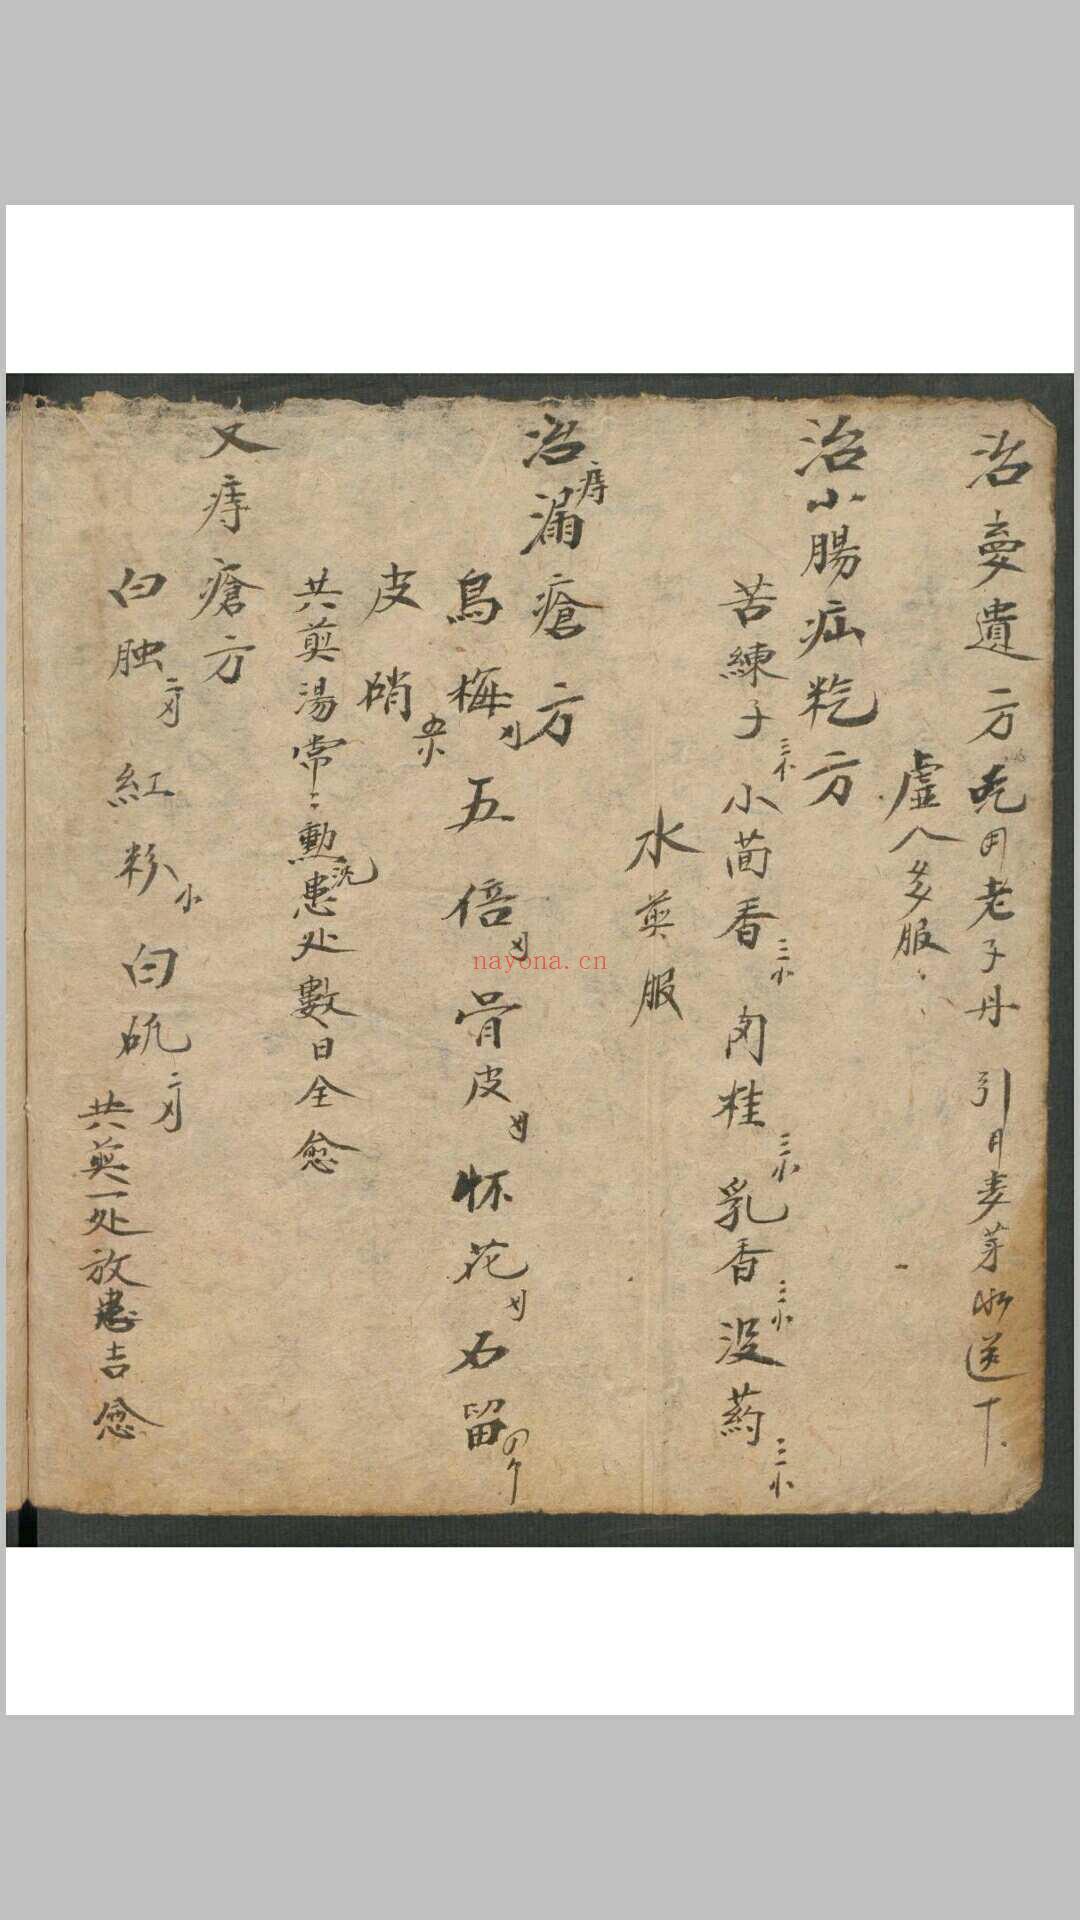 治夢遺方 先用老子丹 引用麦芽水送下
虛人多服
治小腸疝疙方
苦練子 三小 茴香 三小 肉桂 三小 乳香 三小 没药 三小
水煎服
治痔漏瘡方
烏梅 五倍 骨皮 怀花 石留
皮硝 五小
共煎湯常〻勳洗患处數日全愈
又痔瘡方
白蚀 紅粉 小 白矾
共煎一处放患吉愈
nayona.cn